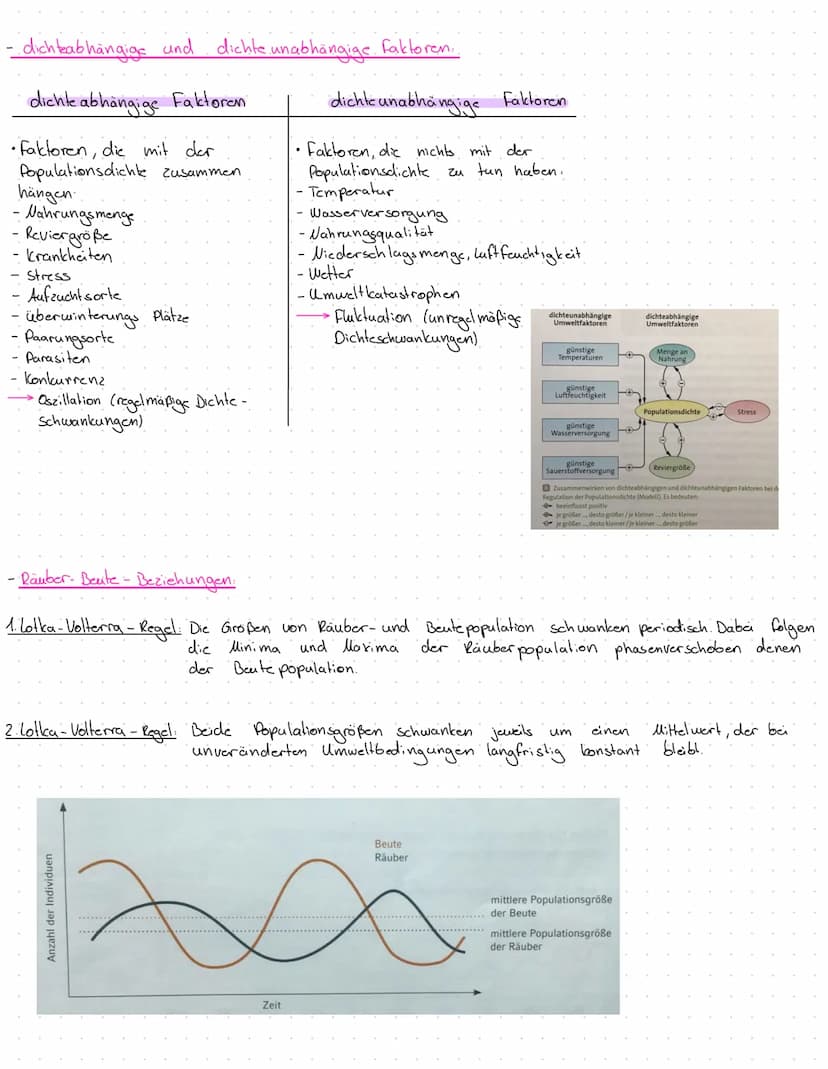 - dichteabhängige und dichteunabhängige Faktoren:
dichteabhängige Faktoren
• Faktoren, die mit der
Populationsdichte zusammen
hängen
- Nahrungsmenge
- Reviergröße
- Krankheiten
- Stress
- Aufzuchtsorte
- überwinterungs Plätze
- Paarungsorte
- Parasiten
- Konkurrenz
→ Oszillation (regelmäßige Dichte-
schwankungen)
dichteunabhängige Faktoren
• Faktoren, die nichts mit der
Populationsdichte zu tun haben.
- Temperatur
- Wasserversorgung
- Nahrungsqualität
- Niederschlagsmenge, Luftfeuchtigkeit
- Wetter
- Umweltkatastrophen
→ Fluktuation (unregelmäßige
Dichteschwankungen)
dichteunabhängige
Umweltfaktoren
dichteabhängige
Umweltfaktoren
günstige
Temperaturen
günstige
Luftfeuchtigkeit
günstige
Wasserversorgung
günstige
Sauerstoffversorgung
Menge an
Nahrung
Populationsdichte
Stress
Reviergröße
Zusammenwirken von dichteabhängigen und dichteunabhängigen Faktoren bei d
Regulation der Populationsdichte (Modell). Es bedeuten:
beeinflusst positiv
je größer ... desto größer / je kleiner ... desto kleiner
je größer ... desto kleiner / je kleiner ... desto größer
- Räuber-Beute-Beziehungen:
1. Lotka-Volterra-Regel: Die Größen von Räuber- und Beutepopulation schwanken periodisch. Dabei folgen
die Minima und Maxima der Räuberpopulation phasenverschoben denen
der Beutepopulation.
2. Lotka-Volterra-Regel: Beide Populationsgrößen schwanken jeweils um einen Mittelwert, der bei
unveränderten Umweltbedingungen langfristig konstant bleibt.
Anzahl der Individuen
Beute
Räuber
mittlere Populationsgröße
der Beute
mittlere Populationsgröße
der Räuber
Zeit